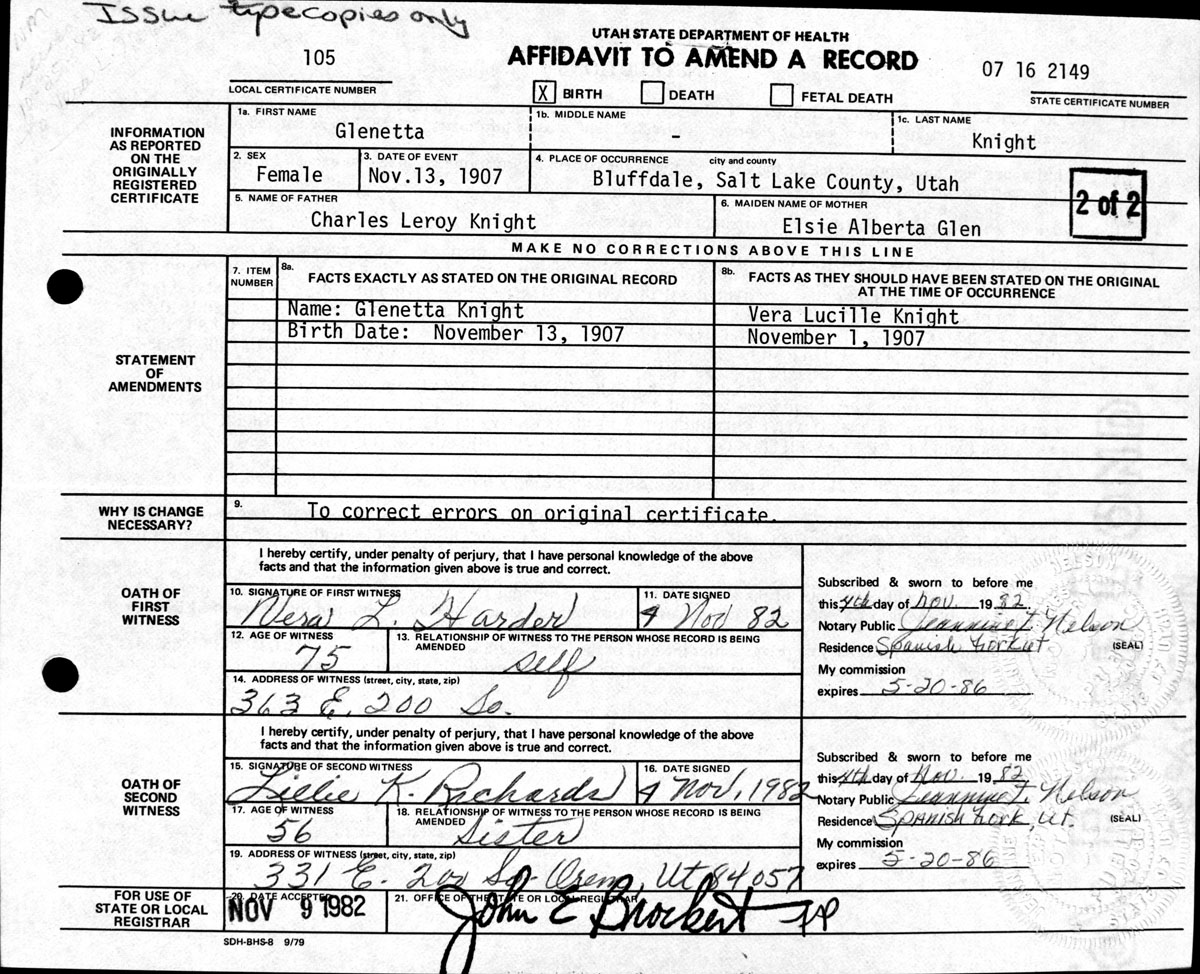 Issue typecopies only
UTAH STATE DEPARTMENT OF HEALTH
AFFIDAVIT TO AMEND A RECORD
105
LOCAL CERTIFICATE NUMBER
X BIRTH DEATH FETAL DEATH
07 16 2149
STATE CERTIFICATE NUMBER
INFORMATION
AS REPORTED
ON THE
ORIGINALLY
REGISTERED
CERTIFICATE
1a. FIRST NAME
Glenetta
1b. MIDDLE NAME
-
1c. LAST NAME
Knight
2. SEX
Female
3. DATE OF EVENT
Nov.13, 1907
4. PLACE OF OCCURRENCE city and county
Bluffdale, Salt Lake County, Utah
5. NAME OF FATHER
Charles Leroy Knight
6. MAIDEN NAME OF MOTHER
Elsie Alberta Glen
2 of 2
MAKE NO CORRECTIONS ABOVE THIS LINE
STATEMENT
OF
AMENDMENTS
7. ITEM
NUMBER
8a. FACTS EXACTLY AS STATED ON THE ORIGINAL RECORD
8b. FACTS AS THEY SHOULD HAVE BEEN STATED ON THE ORIGINAL
AT THE TIME OF OCCURRENCE
Name: Glenetta Knight
Vera Lucille Knight
Birth Date: November 13, 1907
November 1, 1907
WHY IS CHANGE
NECESSARY?
9. To correct errors on original certificate.
OATH OF
FIRST
WITNESS
I hereby certify, under penalty of perjury, that I have personal knowledge of the above
facts and that the information given above is true and correct.
10. SIGNATURE OF FIRST WITNESS
Vera L. Harder
11. DATE SIGNED
4 Nov 82
12. AGE OF WITNESS
75
13. RELATIONSHIP OF WITNESS TO THE PERSON WHOSE RECORD IS BEING
AMENDED
self
14. ADDRESS OF WITNESS (street, city, state, zip)
363 E. 200 So.
Subscribed & sworn to before me
this 4th day of Nov. 1982
Notary Public Jeannine T. Nelson
Residence Spanish Fork Ut (SEAL)
My commission
expires 5-20-86
OATH OF
SECOND
WITNESS
I hereby certify, under penalty of perjury, that I have personal knowledge of the above
facts and that the information given above is true and correct.
15. SIGNATURE OF SECOND WITNESS
Lillie K. Richards
16. DATE SIGNED
4 Nov, 1982
17. AGE OF WITNESS
56
18. RELATIONSHIP OF WITNESS TO THE PERSON WHOSE RECORD IS BEING
AMENDED
Sister
19. ADDRESS OF WITNESS (street, city, state, zip)
331 E. 200 So. Orem, Ut 84057
Subscribed & sworn to before me
this 4th day of Nov. 1982
Notary Public Jeannine T. Nelson
Residence Spanish Fork, Ut. (SEAL)
My commission
expires 5-20-86
FOR USE OF
STATE OR LOCAL
REGISTRAR
20. DATE ACCEPTED
NOV 9 1982
21. OFFICE OF THE STATE OR LOCAL REGISTRAR
John E Brockert
SDH-BHS-8 9/79